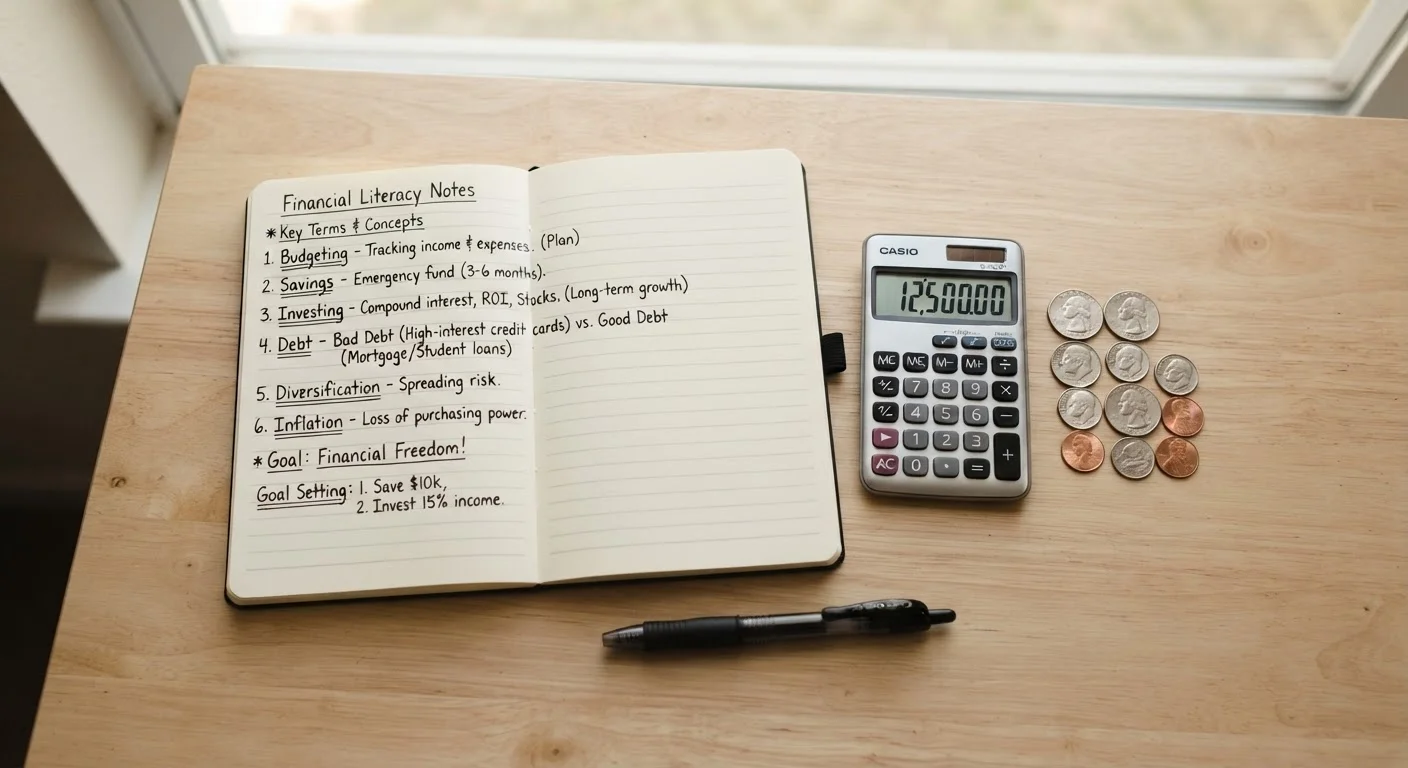 Financial Literacy Notes
* Key Terms & Concepts
1. Budgeting - Tracking income & expenses. (Plan)
2. Savings - Emergency fund (3-6 months).
3. Investing - Compound interest, ROI, Stocks. (Long-term growth)
4. Debt - Bad Debt (High-interest credit cards) vs. Good Debt
(Mortgage/Student loans)
5. Diversification - Spreading risk.
6. Inflation - Loss of purchasing power.
* Goal: Financial Freedom!
Goal Setting: 1. Save $10k,
2. Invest 15% income.
CASIO
12,500.00
MC ME M- M+ ÷
7 8 9 ×
4 5 6 −
1 2 3 +
AC 0 . =